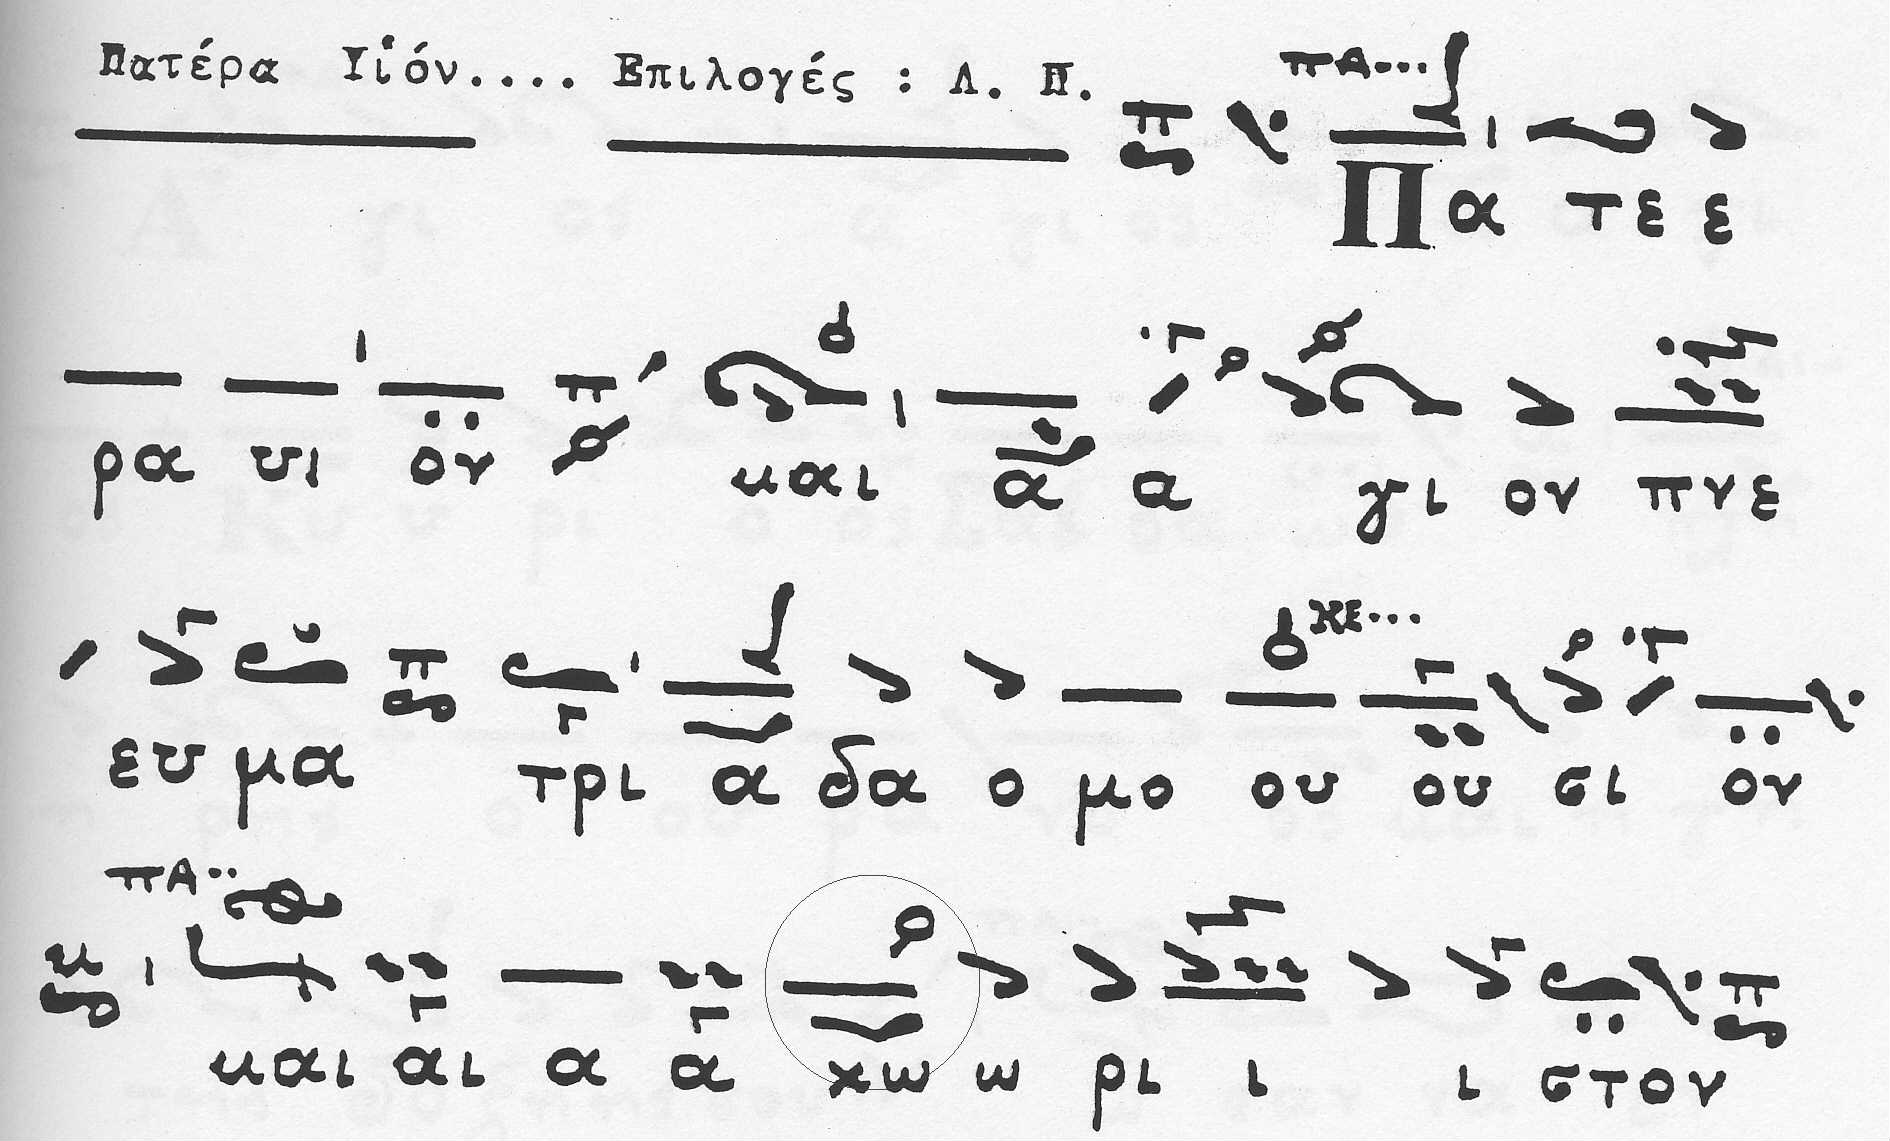 Πατέρα Υἱόν.... Επιλογές : Λ. Π. πΑ...
Πα τε ε
ρα υι ον και α α γι ον πνε
ΚΕ...
ευ μα τρι α δα ο μο ου ου σι ον
πΑ..
και αι α α χω ω ρι ι ι στον